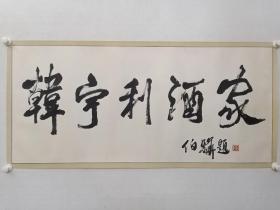 韓宇利酒家
伯驥題